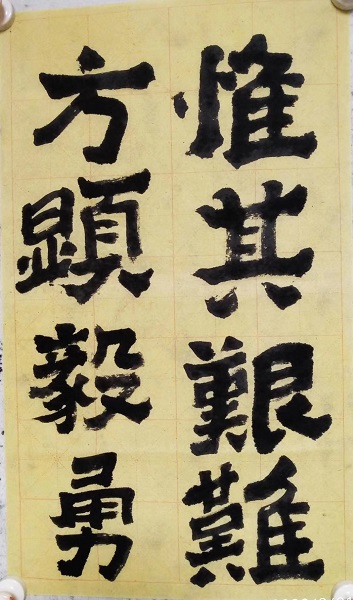 惟其艱難
方顯毅勇